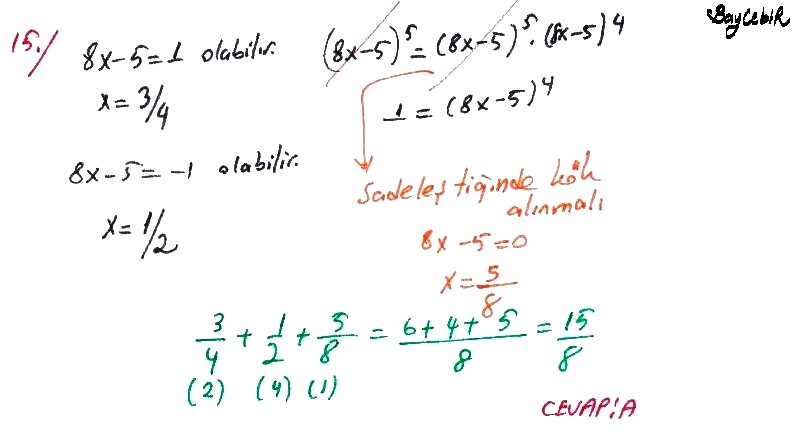 BayCebiR
15./
8x-5=1 olabilir.
x=3/4
8x-5=-1 olabilir.
x=1/2
(8x-5)^5=(8x-5)^5.(8x-5)^4
1=(8x-5)^4
Sadeleştiğinde kök
alınmalı
8x-5=0
x=5/8
3/4+1/2+5/8=(6+4+5)/8=15/8
(2) (4) (1)
CEVAP:A